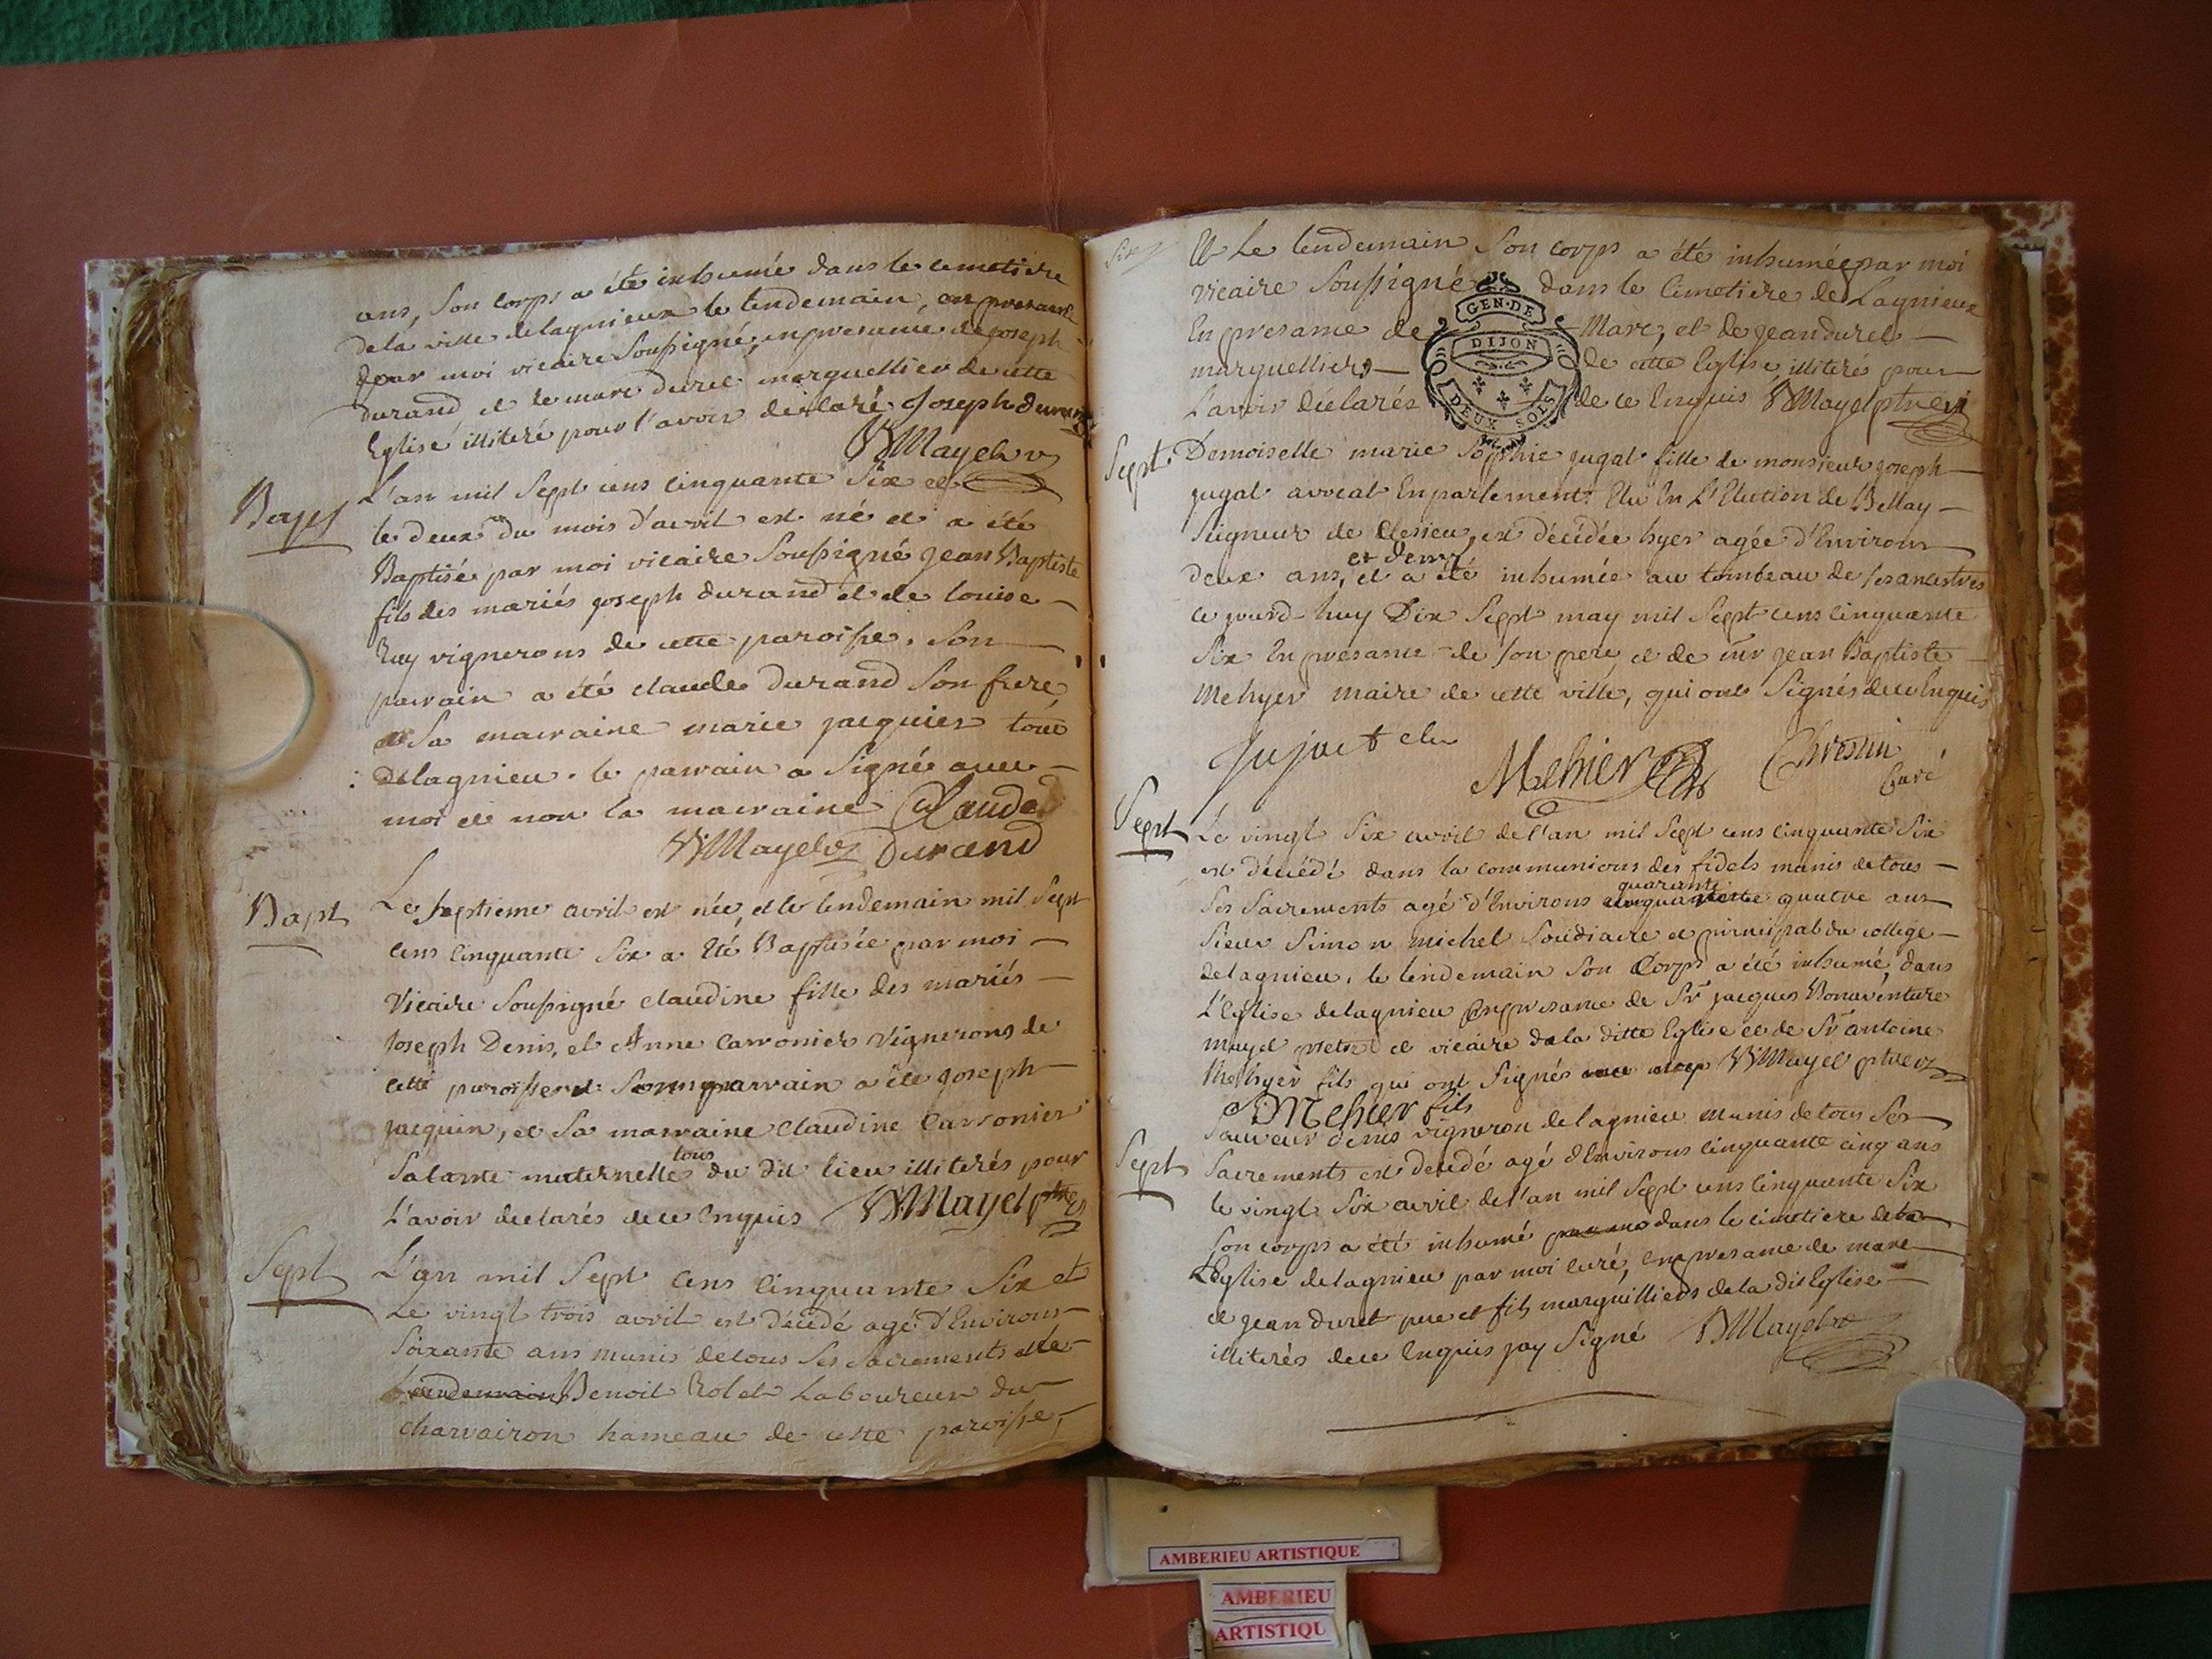 ans, Son corps a été inhumé dans le cimetiere
de la ville de lagnieux le lendemain,
par moi vicaire Soussigné, en presance de joseph
durand et de marc duret marguellier de cette
Eglise illiteré pour l'avoir declaré Joseph durand
Mayet v
Bapt
L'an mil Sept cens cinquante Six et
le deux du mois d'avril est né et a été
Baptisé par moi vicaire Soussigné jean Baptiste
fils des mariés joseph durand et de louise
Ruy vignerons de cette paroisse. Son
parrain a été claude durand Son frere,
et Sa marraine marie jacquier tous
de lagnieu. le parrain a Signé avec
moi et non la marraine Claude
Mayet v Durand
Bapt
Le septieme avril est née, et le lendemain mil Sept
cens cinquante Six a été Baptisée par moi
Vicaire Soussigné claudine fille des mariés
Joseph Denis, et Anne Carronier Vignerons de
cette paroisse Son parrain a été joseph
jacquin, et Sa marraine Claudine Carronier
Sa tante maternelle tous du dit lieu illiterés pour
L'avoir declarés de ce Enquis Mayet ptre v
Sept
L'an mil Sept cens cinquante Six et
Le vingt trois avril est décédé agé d'Environ
Soixante ans munis de tous Ses Sacrements
Lendemain Benoit Rolet Laboureur du
charvairon hameau de cette paroisse,
Six
Et Le lendemain Son corps a été inhumé par moi
vicaire Soussigné dans le Cimetiere de Lagnieux
En presance de Marc, et de jean duret
marguelliers de cette Eglise illiteré pour
L'avoir déclarés de ce Enquis Mayet ptre v
GEN·DE
DIJON
DEUX SOLS
Sept.
Demoiselle marie Sophie jugat fille de monsieur joseph
jugat avocat En parlement Elu En L'Election de Bellay
Seigneur de Clesieu, est décédée hyer agée d'Environ
deux ans et demy, et a été inhumée au tombeau de ses ancestres
ce jourd-huy Dix Sept may mil Sept cens cinquante
Six En presance de Son pere, et de jean Baptiste
Mehyer maire de cette ville, qui ont Signés de ce Enquis
Jujat elu
Mehier
Chrestin
Curé
Sept
Le vingt Six avril de l'an mil Sept cens cinquante Six
est décédé dans la communion des fidels munis de tous
Ses Sacrements agé d'Environs quarante quatre ans
Sieur Simon michel Soudiacre et principal du college
de lagnieu. le lendemain Son Corps a été inhumé, dans
L'Eglise de lagnieu En presance de Sr jacques Bonaventure
mayet pretre et vicaire de la ditte Eglise et de Sr antoine
Mehyer fils qui ont Signés Mayet ptre v
Mehier fils
Sept
Sauveur denis vigneron de lagnieu munis de tous Ses
Sacrements est decedé agé d'Environs cinquante cinq ans
le vingt Six avril de l'an mil Sept cens cinquante Six
Son corps a été inhumé dans le cimetiere de la
L'Eglise de lagnieu par moi curé, En presance de marc
et jean duret pere et fils marguilliers de la dit Eglise
illiterés de ce Enquis jay Signé Mayet v
AMBERIEU ARTISTIQUE
AMBERIEU
ARTISTIQU